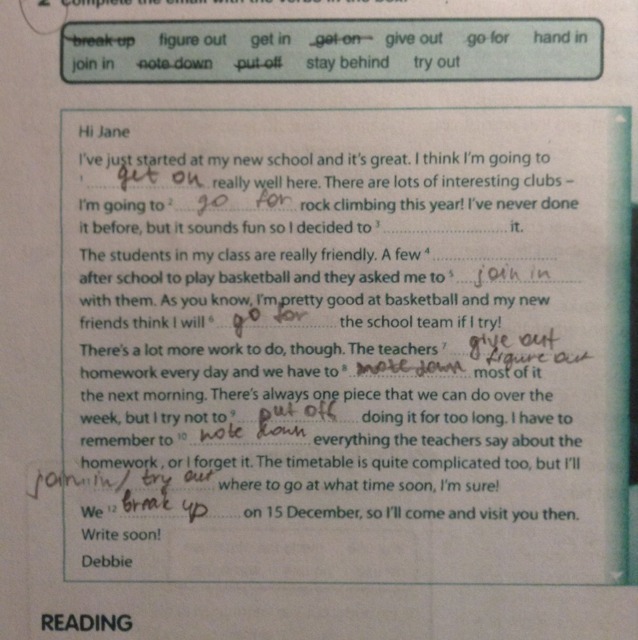 2 Complete the email with the verbs in the box.
break up figure out get in get on give out go for hand in
join in note down put off stay behind try out
Hi Jane
I've just started at my new school and it's great. I think I'm going to
1 get on really well here. There are lots of interesting clubs –
I'm going to 2 go for rock climbing this year! I've never done
it before, but it sounds fun so I decided to 3 it.
The students in my class are really friendly. A few 4
after school to play basketball and they asked me to 5 join in
with them. As you know, I'm pretty good at basketball and my new
friends think I will 6 go for the school team if I try!
There's a lot more work to do, though. The teachers 7 give out
figure out
homework every day and we have to 8 note down most of it
the next morning. There's always one piece that we can do over the
week, but I try not to 9 put off doing it for too long. I have to
remember to 10 note down everything the teachers say about the
homework, or I forget it. The timetable is quite complicated too, but I'll
join in / try out where to go at what time soon, I'm sure!
We 12 break up on 15 December, so I'll come and visit you then.
Write soon!
Debbie
READING